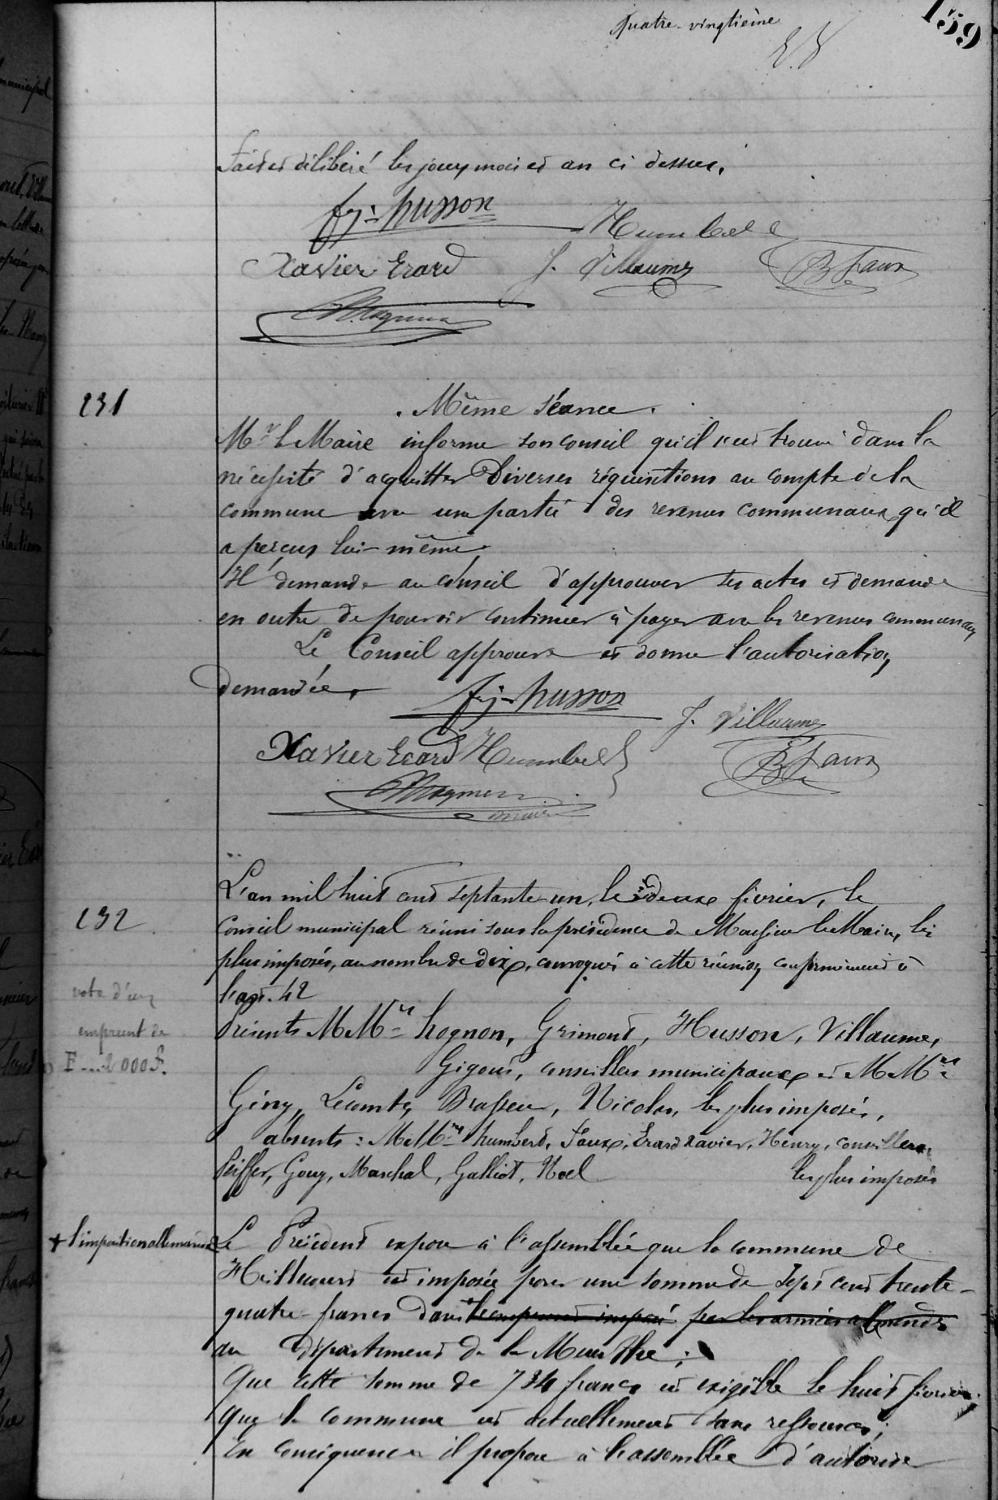 quatre-vingtième
159
Fait et délibéré les jour, mois et an ci dessus.
fr. husson
Humbert
Xavier Erard J. Villaume B Faux
Magnien
131
Même séance.
Mr le Maire informe son conseil qu'il s'est trouvé dans la
nécessité d'acquitter Diverses réquisitions au compte de la
commune avec une partie des revenus communaux qu'il
a perçus lui-même.
Il demande au conseil d'approuver ses actes et demande
en outre de pouvoir continuer à payer avec les revenus communaux
Le Conseil approuve et donne l'autorisation
demandée.
fr. husson
J. Villaume
Xavier Erard Humbert B Faux
Magnien
maire
132
L'an mil huit cent septante-un, le deux février, le
Conseil municipal réuni sous la présidence de Monsieur le Maire, les
plus imposés, au nombre de dix, convoqués à cette réunion conformément à
l'art. 42
vote d'un
emprunt de
F....2000 f.
Présents MMrs hognon, Grimont, Husson, Villaume,
Gigout, conseillers municipaux et MMrs
Gény, Lecomte, Brasseur, Nicolas, les plus imposés,
absents : MMrs humbert, Faux, Erard Xavier, Henry, conseillers,
Peiffer, Gouy, Marchal, Galliot, Noel les plus imposés
+ l'imposition allemande
Le Président expose à l'assemblée que la commune de
Heillecourt est imposée pour une somme de Sept cent trente-
quatre francs dans + l'emprunt imposé par les armées allemandes
au département de la Meurthe ;
Que cette somme de 734 francs est exigible le huit février,
Que la commune est actuellement sans ressources ;
En conséquence il propose à l'assemblée d'autoriser